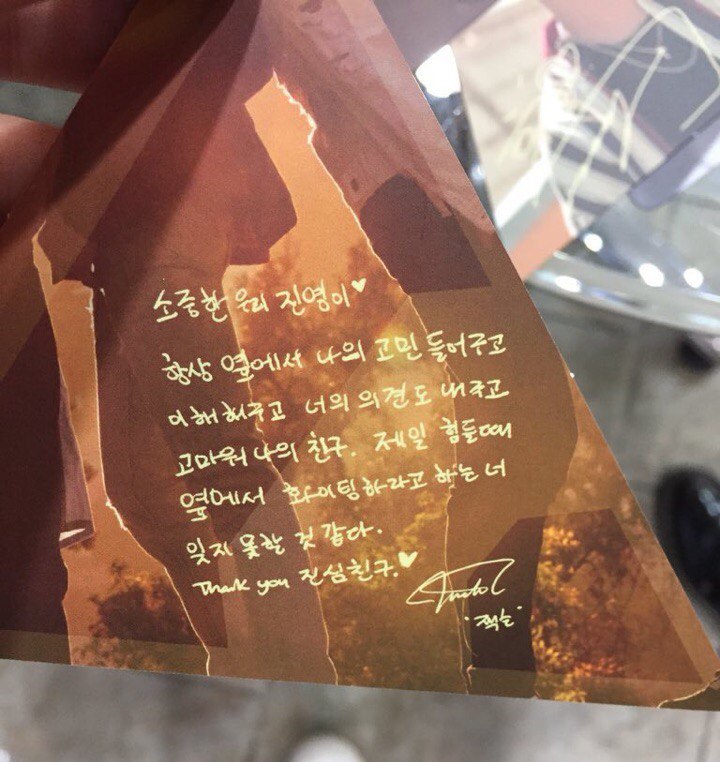 소중한 우리 진영이♥
항상 옆에서 나의 고민 들어주고
이해해주고 너의 의견도 내주고
고마워 나의 친구. 제일 힘들때
옆에서 화이팅하라고 하는 너
잊지 못할 것 같다.
Thank you 진심친구.♥